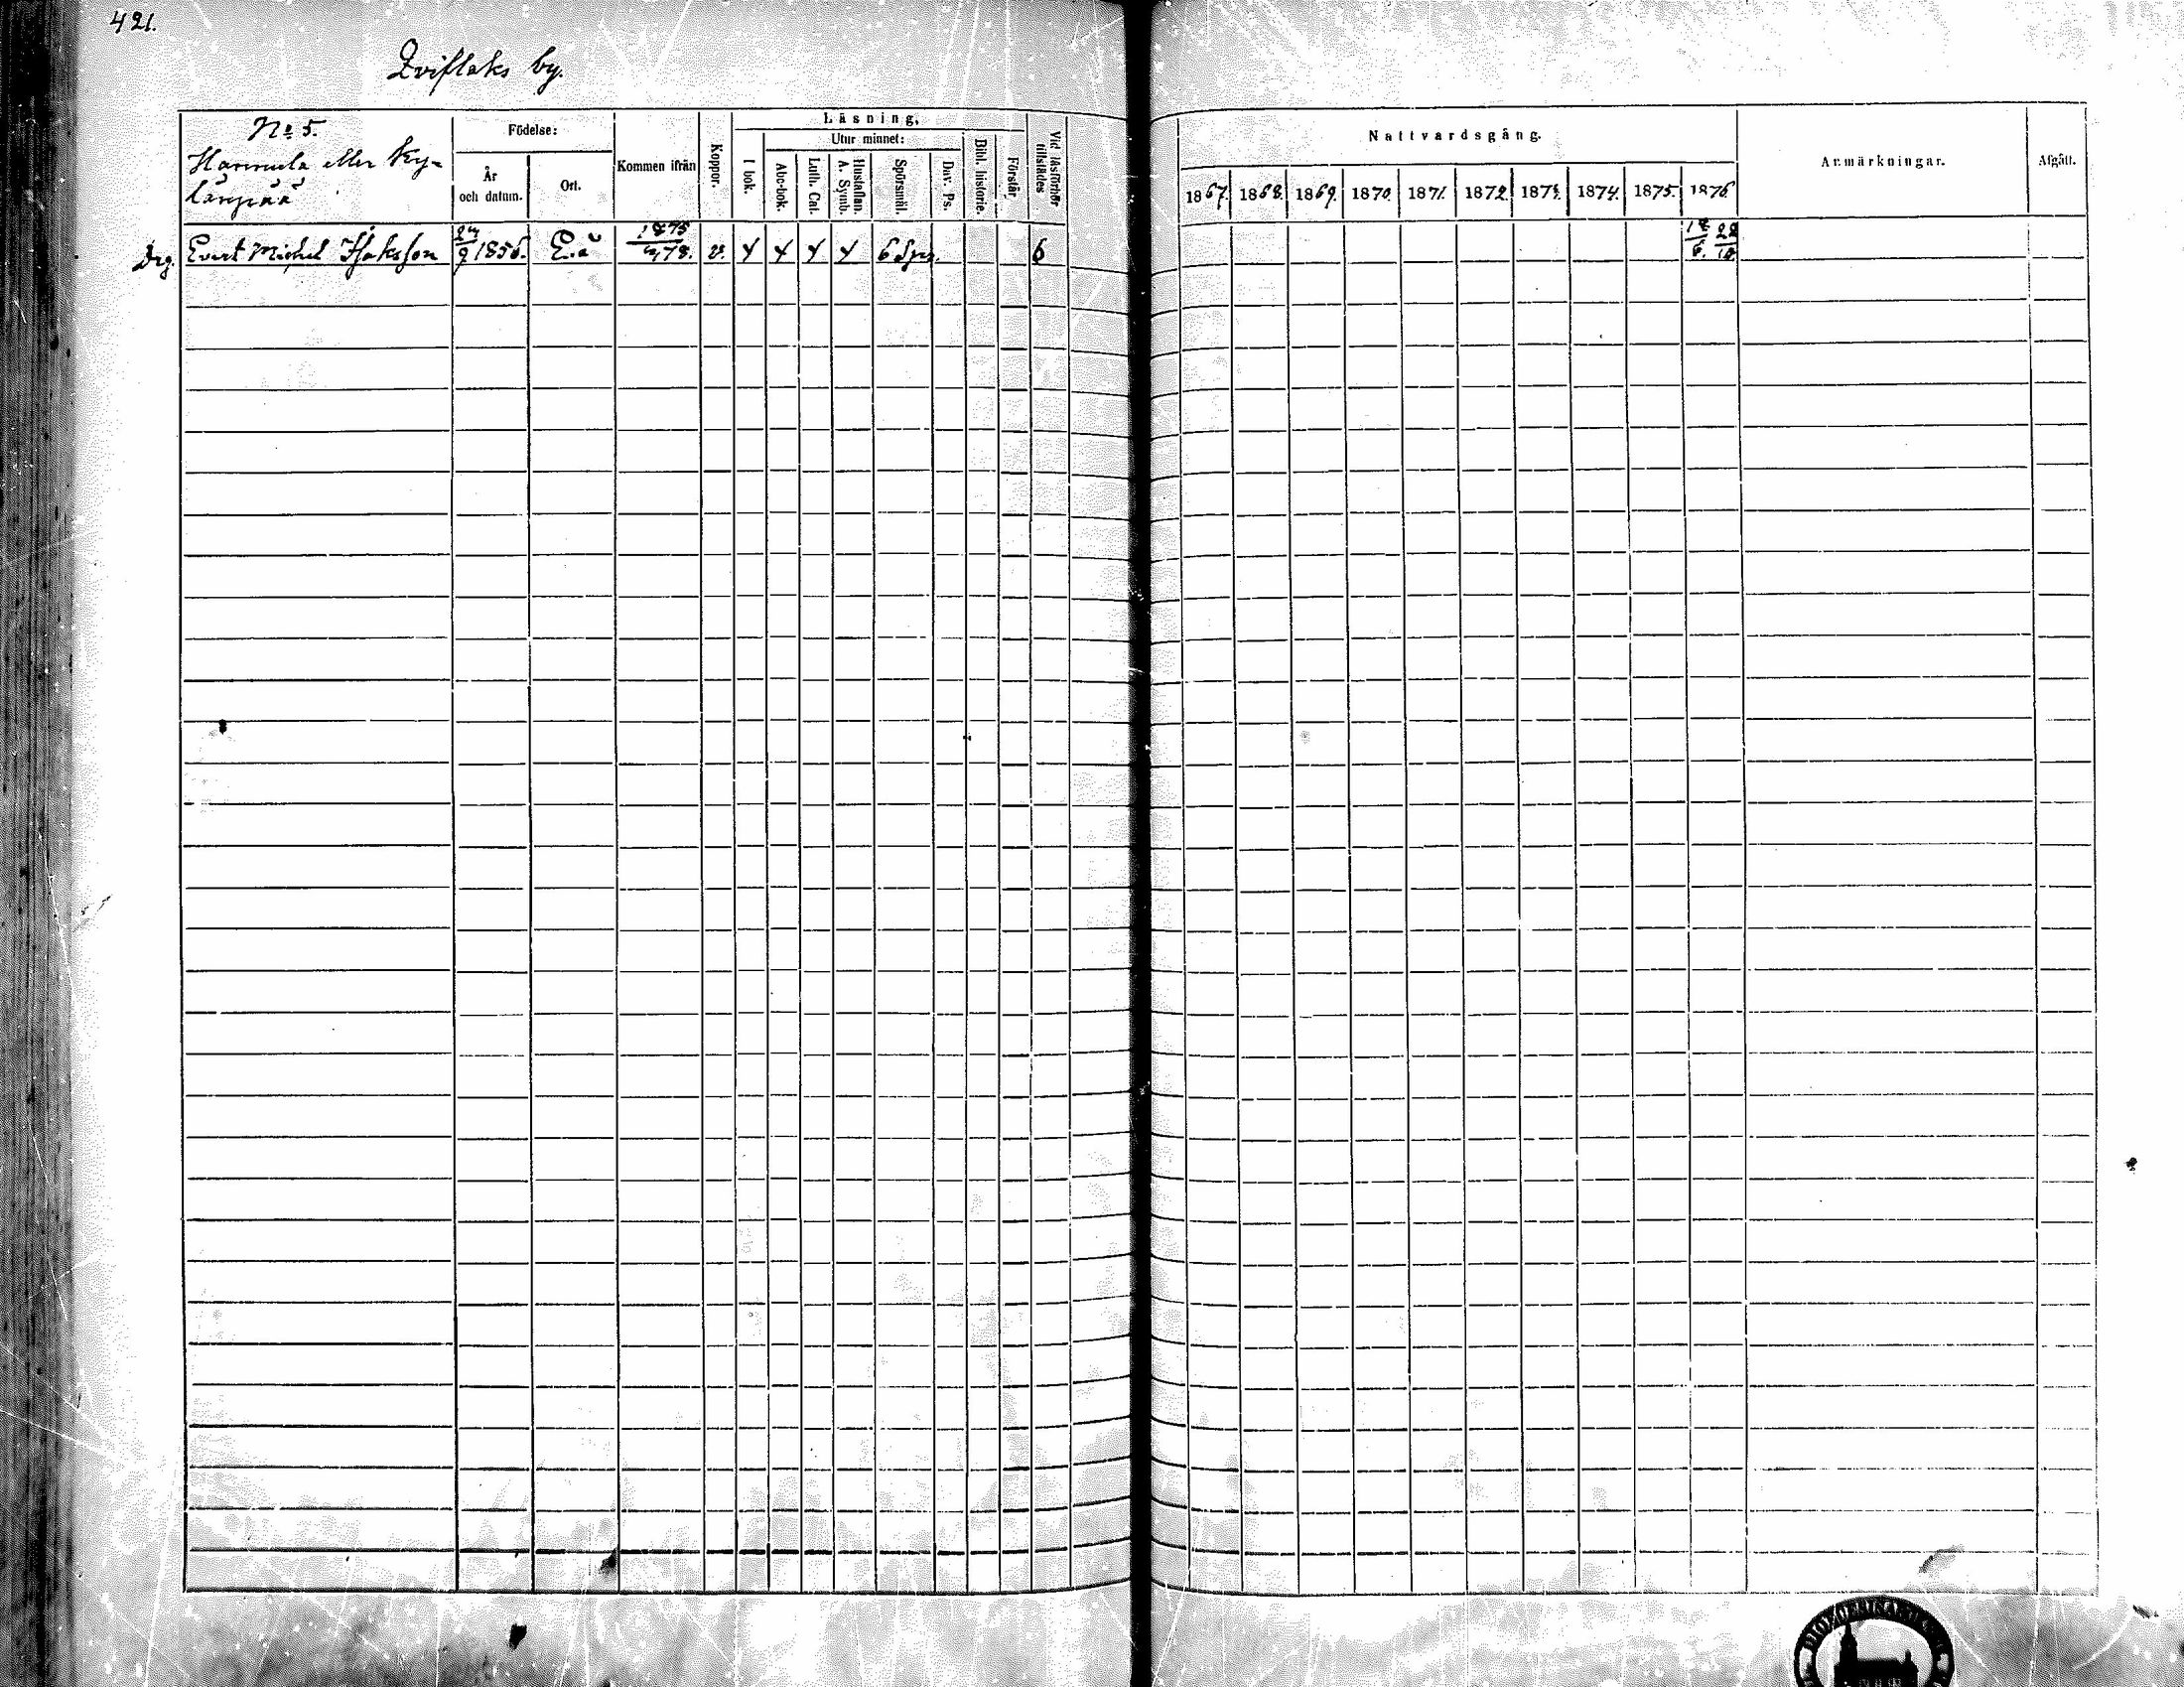 421.
Qviflaks by.
No 5.
Hannula eller Ky-
länpää
Födelse:
År
och datum.
Ort.
Kommen ifrån
Koppor.
Läsning.
I bok.
Utur minnet:
Abc-bok.
Luth. Cat.
Hustaflan.
A. Symb.
Spörsmål.
Dav. Ps.
Bibl. historie.
Förstår.
Vid läsförhör
tillstädes
Nattvardsgång.
1867. 1868. 1869. 1870. 1871. 1872. 1873. 1874. 1875. 1876.
Anmärkningar.
Afgått.
Drg. Evert Michel Isaksson 24/9 1856. 1875 v. 6 Spm. 6